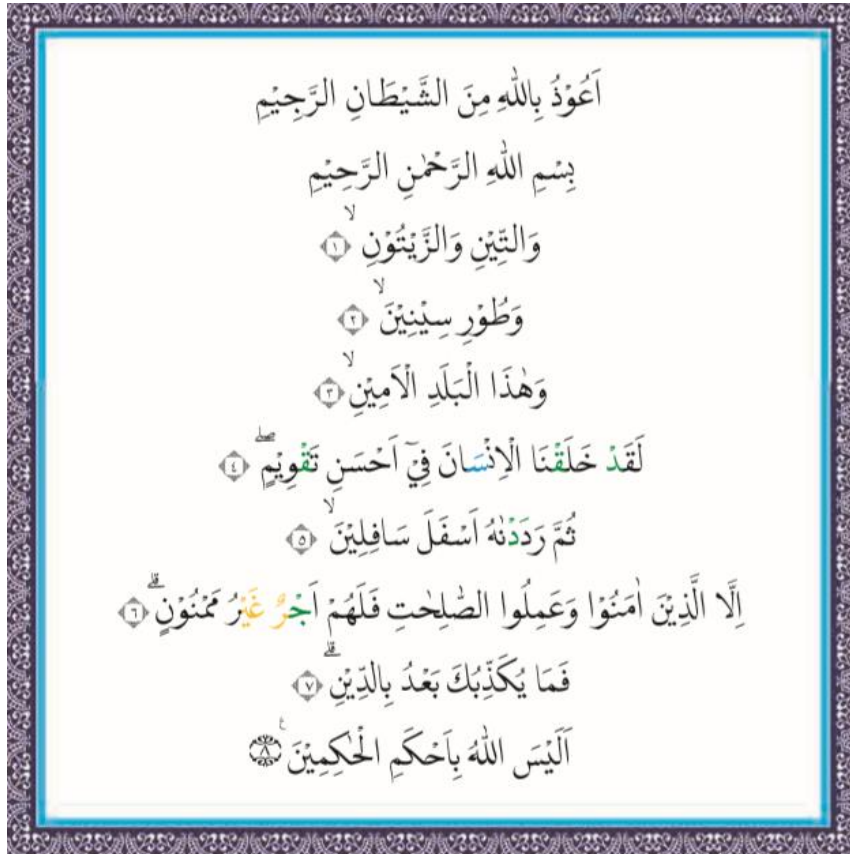 اَعُوْذُ بِاللّٰهِ مِنَ الشَّيْطَانِ الرَّجِيْمِ
بِسْمِ اللّٰهِ الرَّحْمٰنِ الرَّحِيْمِ
وَالتِّيْنِ وَالزَّيْتُوْنِۙ ١
وَطُوْرِ سِيْنِيْنَۙ ٢
وَهٰذَا الْبَلَدِ الْاَمِيْنِۙ ٣
لَقَدْ خَلَقْنَا الْاِنْسَانَ فِيْٓ اَحْسَنِ تَقْوِيْمٍۖ ٤
ثُمَّ رَدَدْنٰهُ اَسْفَلَ سَافِلِيْنَۙ ٥
اِلَّا الَّذِيْنَ اٰمَنُوْا وَعَمِلُوا الصّٰلِحٰتِ فَلَهُمْ اَجْرٌ غَيْرُ مَمْنُوْنٍۗ ٦
فَمَا يُكَذِّبُكَ بَعْدُ بِالدِّيْنِۗ ٧
اَلَيْسَ اللّٰهُ بِاَحْكَمِ الْحٰكِمِيْنَ ࣖ ٨